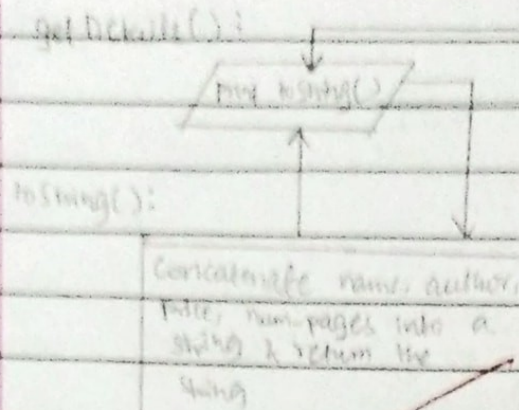 getDetails():
print toString()
toString():
Concatenate name, author,
price, num-pages into a
string & return the
string